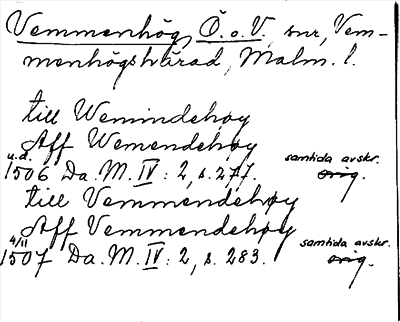 Vemmenhög, Ö. o V., snr, Vem-
menhögshärad, Malm. l.
till Wemindehøy
Aff Wemendehøy
u.d. samtida avskr.
1506 Da. M. IV: 2, s. 277. orig.
till Vemmendehøy
Aff Vemmendehøy
4/11 samtida avskr.
1507 Da. M. IV: 2, s. 283. orig.